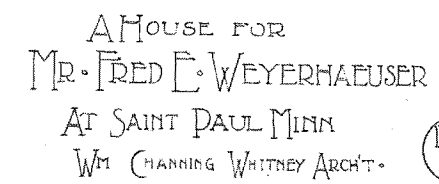 A HOUSE FOR
MR. FRED E. WEYERHAEUSER
AT SAINT PAUL MINN
WM CHANNING WHITNEY ARCH'T.